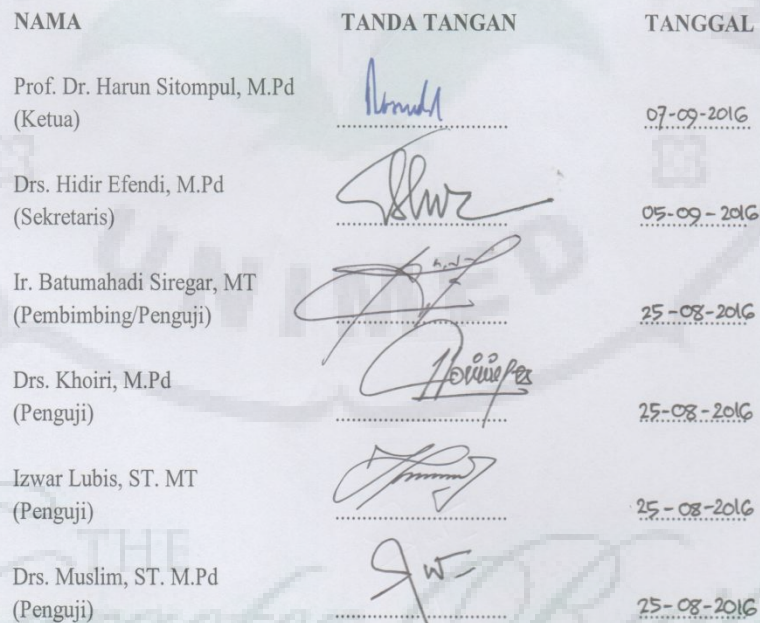 NAMA TANDA TANGAN TANGGAL
Prof. Dr. Harun Sitompul, M.Pd
(Ketua) 07-09-2016
Drs. Hidir Efendi, M.Pd
(Sekretaris) 05-09-2016
Ir. Batumahadi Siregar, MT
(Pembimbing/Penguji) 25-08-2016
Drs. Khoiri, M.Pd
(Penguji) 25-08-2016
Izwar Lubis, ST. MT
(Penguji) 25-08-2016
Drs. Muslim, ST. M.Pd
(Penguji) 25-08-2016
UNIMED
THE